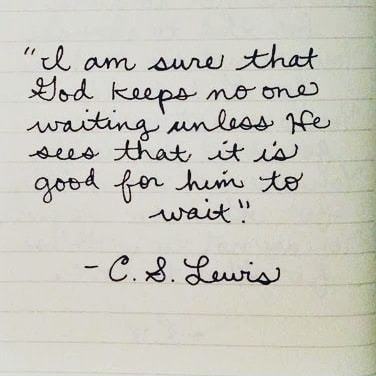 "I am sure that
God keeps no one
waiting unless He
sees that it is
good for him to
wait."
- C. S. Lewis